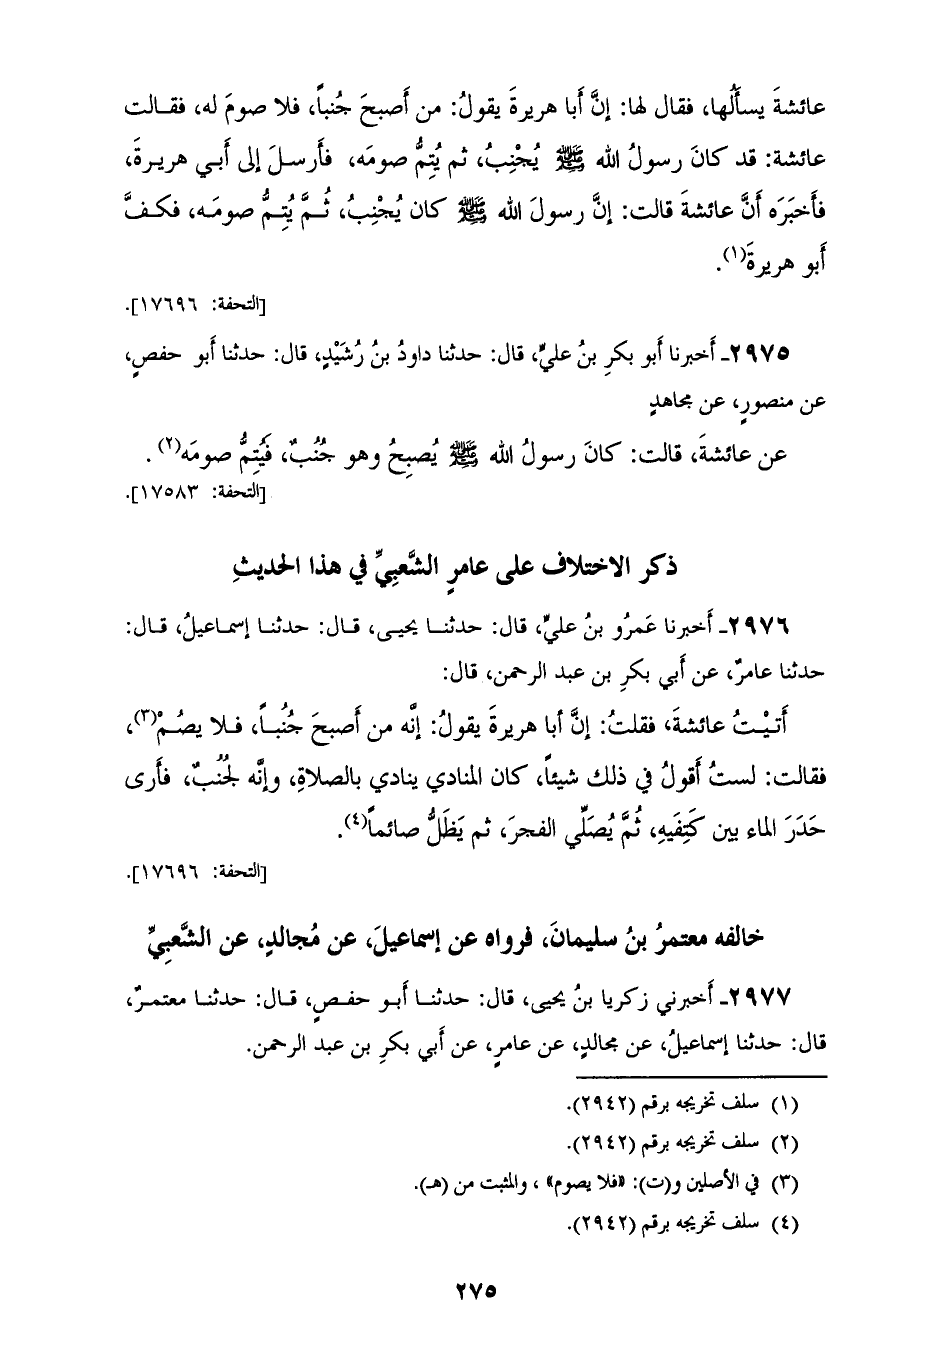 عائشةَ يسأَلُها، فقال لها: إنَّ أَبا هريرةَ يقولُ: من أَصبحَ جُنباً، فلا صومَ له، فقالت
عائشة: قد كانَ رسولُ الله ﷺ يُجْنِبُ، ثم يُتِمُّ صومَه، فأَرسلَ إلى أَبي هريرةَ،
فأَخبَرَه أَنَّ عائشةَ قالت: إنَّ رسولَ الله ﷺ كان يُجْنِبُ، ثُمَّ يُتِمُّ صومَه، فكفَّ
أَبو هريرةَ(١).
[التحفة: ١٧٦٩٦].
٢٩٧٥ـ أَخبرنا أَبو بكرِ بنُ عليٍّ، قال: حدثنا داودُ بنُ رُشَيْدٍ، قال: حدثنا أَبو حفصٍ،
عن منصورٍ، عن مجاهدٍ
عن عائشةَ، قالت: كانَ رسولُ الله ﷺ يُصبِحُ وهو جُنُبٌ، فَيُتِمُّ صومَه(٢).
[التحفة: ١٧٥٨٣].
ذكر الاختلاف على عامرٍ الشَّعبِيِّ في هذا الحديثِ
٢٩٧٦ـ أَخبرنا عَمرُو بنُ عليٍّ، قال: حدثنا يحيى، قال: حدثنا إسماعيلُ، قال:
حدثنا عامرٌ، عن أَبي بكرِ بن عبد الرحمن، قال:
أَتيْتُ عائشةَ، فقلتُ: إنَّ أبا هريرةَ يقولُ: إنَّه من أَصبحَ جُنُباً، فلا يصُمْ(٣)،
فقالت: لستُ أَقولُ في ذلك شيئاً، كان المنادي ينادي بالصلاةِ، وإنَّه لَجُنُبٌ، فأَرى
حَدَرَ الماء بين كَتِفَيهِ، ثُمَّ يُصَلِّي الفجرَ، ثم يَظَلُّ صائماً(٤).
[التحفة: ١٧٦٩٦].
خالفه معتمرُ بنُ سليمانَ، فرواه عن إسماعيلَ، عن مُجالدٍ، عن الشَّعبِيِّ
٢٩٧٧ـ أَخبرني زكريا بنُ يحيى، قال: حدثنا أَبو حفصٍ، قال: حدثنا معتمرٌ،
قال: حدثنا إسماعيلُ، عن مجالدٍ، عن عامرٍ، عن أَبي بكرِ بن عبد الرحمن.
(١) سلف تخريجه برقم (٢٩٤٢).
(٢) سلف تخريجه برقم (٢٩٤٢).
(٣) في الأصلين و(ت): «فلا يصوم»، والمثبت من (هـ).
(٤) سلف تخريجه برقم (٢٩٤٢).
٢٧٥